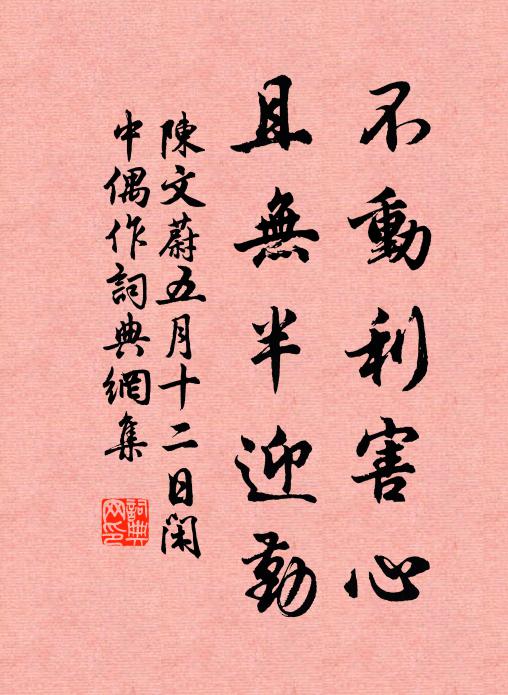 不動利害心
且無半迎勤
陳文蔚五月十二日閑
中偶作詞典網集
詞典
网印